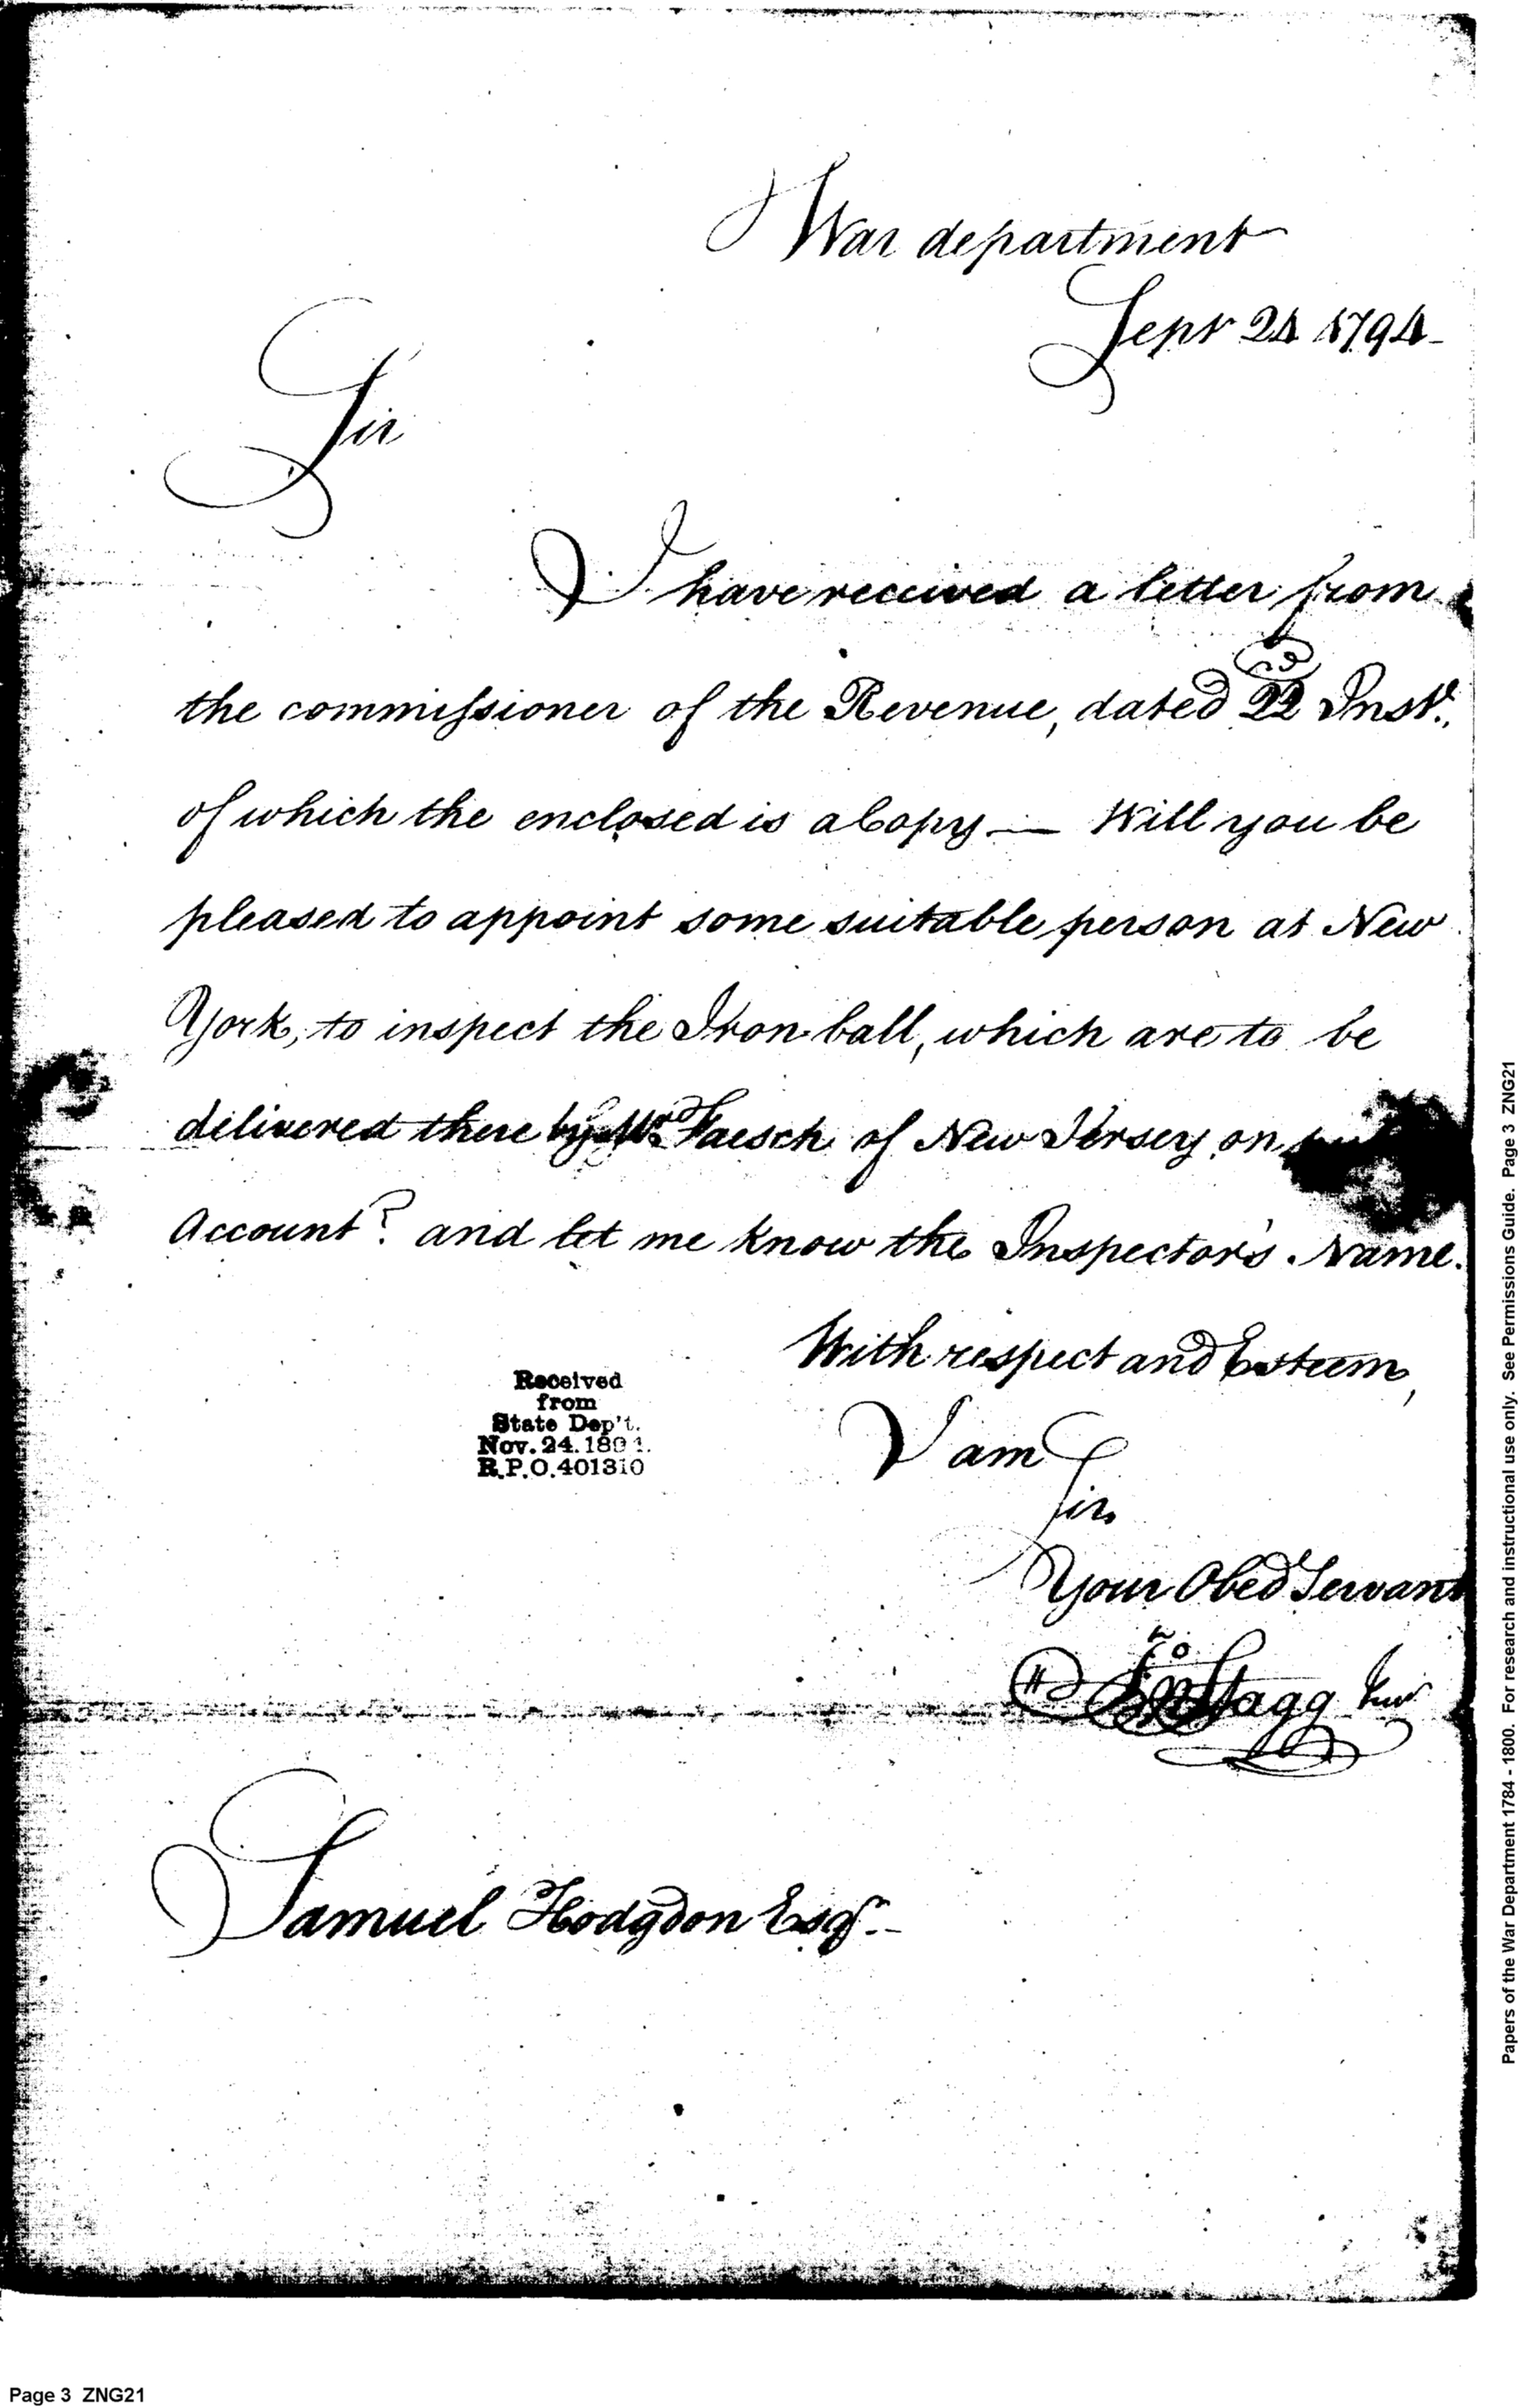 War department
Sept 24 1794
Sir
I have received a letter from
the commissioner of the Revenue, dated 22 Inst.,
of which the enclosed is a Copy — Will you be
pleased to appoint some suitable person at New
York, to inspect the Iron ball, which are to be
delivered there by Mr Faesch of New Jersey on
Account? and let me know the Inspector's Name.
With respect and Esteem,
I am
Sir
Your Obed Servant
Jno Stagg Junr
Samuel Hodgdon Esqr.
Received
from
State Dep't.
Nov. 24. 1894.
R.P.O. 401310
Papers of the War Department 1784 - 1800. For research and instructional use only. See Permissions Guide. Page 3 ZNG21
Page 3 ZNG21